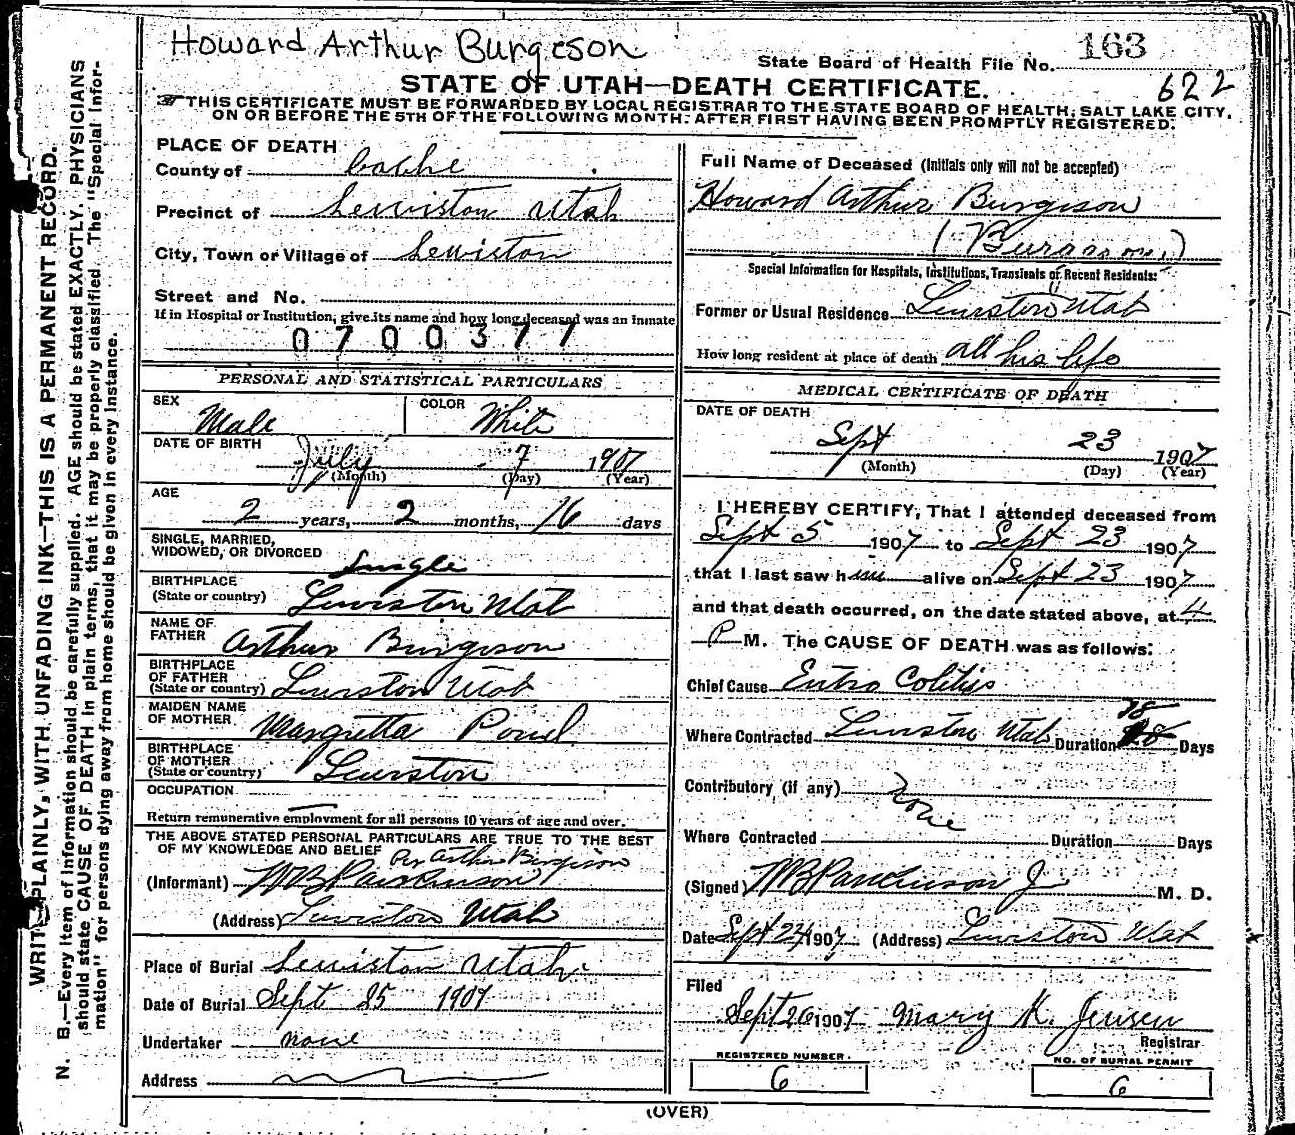 Howard Arthur Burgeson
State Board of Health File No. 163
622
STATE OF UTAH—DEATH CERTIFICATE.
THIS CERTIFICATE MUST BE FORWARDED BY LOCAL REGISTRAR TO THE STATE BOARD OF HEALTH, SALT LAKE CITY,
ON OR BEFORE THE 5TH OF THE FOLLOWING MONTH, AFTER FIRST HAVING BEEN PROMPTLY REGISTERED.
WRITE PLAINLY, WITH UNFADING INK—THIS IS A PERMANENT RECORD.
N. B.—Every item of information should be carefully supplied. AGE should be stated EXACTLY. PHYSICIANS
should state CAUSE OF DEATH in plain terms, that it may be properly classified. The "Special Infor-
mation" for persons dying away from home should be given in every instance.
PLACE OF DEATH
County of Cache
Precinct of Lewiston Utah
City, Town or Village of Lewiston
Street and No.
If in Hospital or Institution, give its name and how long deceased was an inmate
0700377
PERSONAL AND STATISTICAL PARTICULARS
SEX Male COLOR White
DATE OF BIRTH July 7 1907
(Month) (Day) (Year)
AGE
2 years, 2 months, 16 days
SINGLE, MARRIED,
WIDOWED, OR DIVORCED Single
BIRTHPLACE
(State or country) Lewiston Utah
NAME OF
FATHER Arthur Burgeson
BIRTHPLACE
OF FATHER
(State or country) Lewiston Utah
MAIDEN NAME
OF MOTHER Margretta
BIRTHPLACE
OF MOTHER
(State or country) Lewiston
OCCUPATION
Return remunerative employment for all persons 10 years of age and over.
THE ABOVE STATED PERSONAL PARTICULARS ARE TRUE TO THE BEST
OF MY KNOWLEDGE AND BELIEF Per Arthur Burgeson
(Informant) WB Parkinson
(Address) Lewiston Utah
Place of Burial Lewiston Utah
Date of Burial Sept 25 1907
Undertaker none
Address
Full Name of Deceased (Initials only will not be accepted)
Howard Arthur Burgeson
Special Information for Hospitals, Institutions, Transients or Recent Residents:
Former or Usual Residence Lewiston Utah
How long resident at place of death all his life
MEDICAL CERTIFICATE OF DEATH
DATE OF DEATH
Sept 23 1907
(Month) (Day) (Year)
I HEREBY CERTIFY, That I attended deceased from
Sept 5 1907 to Sept 23 1907
that I last saw him alive on Sept 23 1907
and that death occurred, on the date stated above, at 4
P M. The CAUSE OF DEATH was as follows:
Chief Cause Entro Colitis
Where Contracted Lewiston Utah Duration 18 Days
Contributory (if any) None
Where Contracted Duration Days
(Signed) WB Parkinson Jr M. D.
Date Sept 24 1907 (Address) Lewiston Utah
Filed
Sept 26 1907 Mary K. Jensen
Registrar
REGISTERED NUMBER.
6
NO. OF BURIAL PERMIT
6
(OVER)